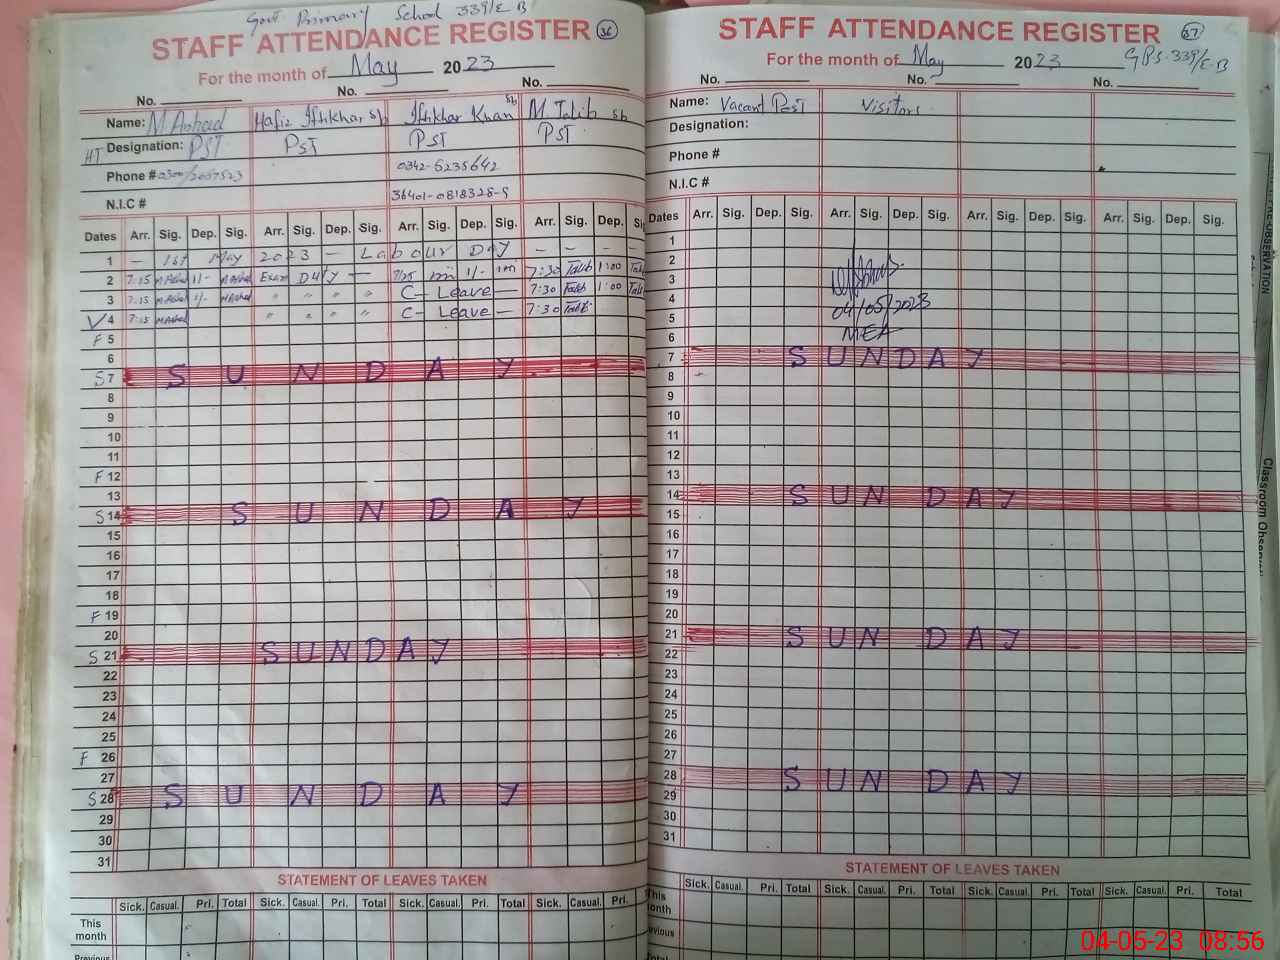 Govt Primary School 339/E B
STAFF ATTENDANCE REGISTER 36
For the month of May 2023
No. No. No.
Name: M Arshad Hafiz Iftikhar sb Iftikhar Khan sb M. Talib sb
HT Designation: PST PST PST PST
Phone # 0342-6235642
N.I.C # 36401-0818328-9
Dates Arr. Sig. Dep. Sig. Arr. Sig. Dep. Sig. Arr. Sig. Dep. Sig. Arr. Sig. Dep. Sig.
1 – 1st May 2023 – Labour Day – – – –
2 7:15 M Arshad 11- M Arshad Exam Duty – 7/15 11- 7:30 Talib 1:00 Talib
3 7:15 M Arshad 11- M Arshad " " " " C- Leave – 7:30 Talib 1:00 Tali
4 7:15 M Arshad " " " " C- Leave – 7:30 Talib
F 5
6
S 7 SUNDAY
8
9
10
11
F 12
13
S 14 SUNDAY
15
16
17
18
F 19
20
S 21 SUNDAY
22
23
24
25
F 26
27
S 28 SUNDAY
29
30
31
STATEMENT OF LEAVES TAKEN
Sick. Casual. Pri. Total Sick. Casual. Pri. Total Sick. Casual. Pri. Total Sick. Casual. Pri. Total
This month
Previous
STAFF ATTENDANCE REGISTER 37
For the month of May 2023 GPS. 339/E-B
No. No. No.
Name: Vacant Post Visitors
Designation:
Phone #
N.I.C #
Dates Arr. Sig. Dep. Sig. Arr. Sig. Dep. Sig. Arr. Sig. Dep. Sig. Arr. Sig. Dep. Sig.
1
2
3
4
5 04/05/2023
6 MEA
7 SUNDAY
8
9
10
11
12
13
14 SUNDAY
15
16
17
18
19
20
21 SUNDAY
22
23
24
25
26
27
28 SUNDAY
29
30
31
STATEMENT OF LEAVES TAKEN
This month Sick. Casual. Pri. Total Sick. Casual. Pri. Total Sick. Casual. Pri. Total Sick. Casual. Pri. Total
OBSERVATION
Classroom
04-05-23 08:56